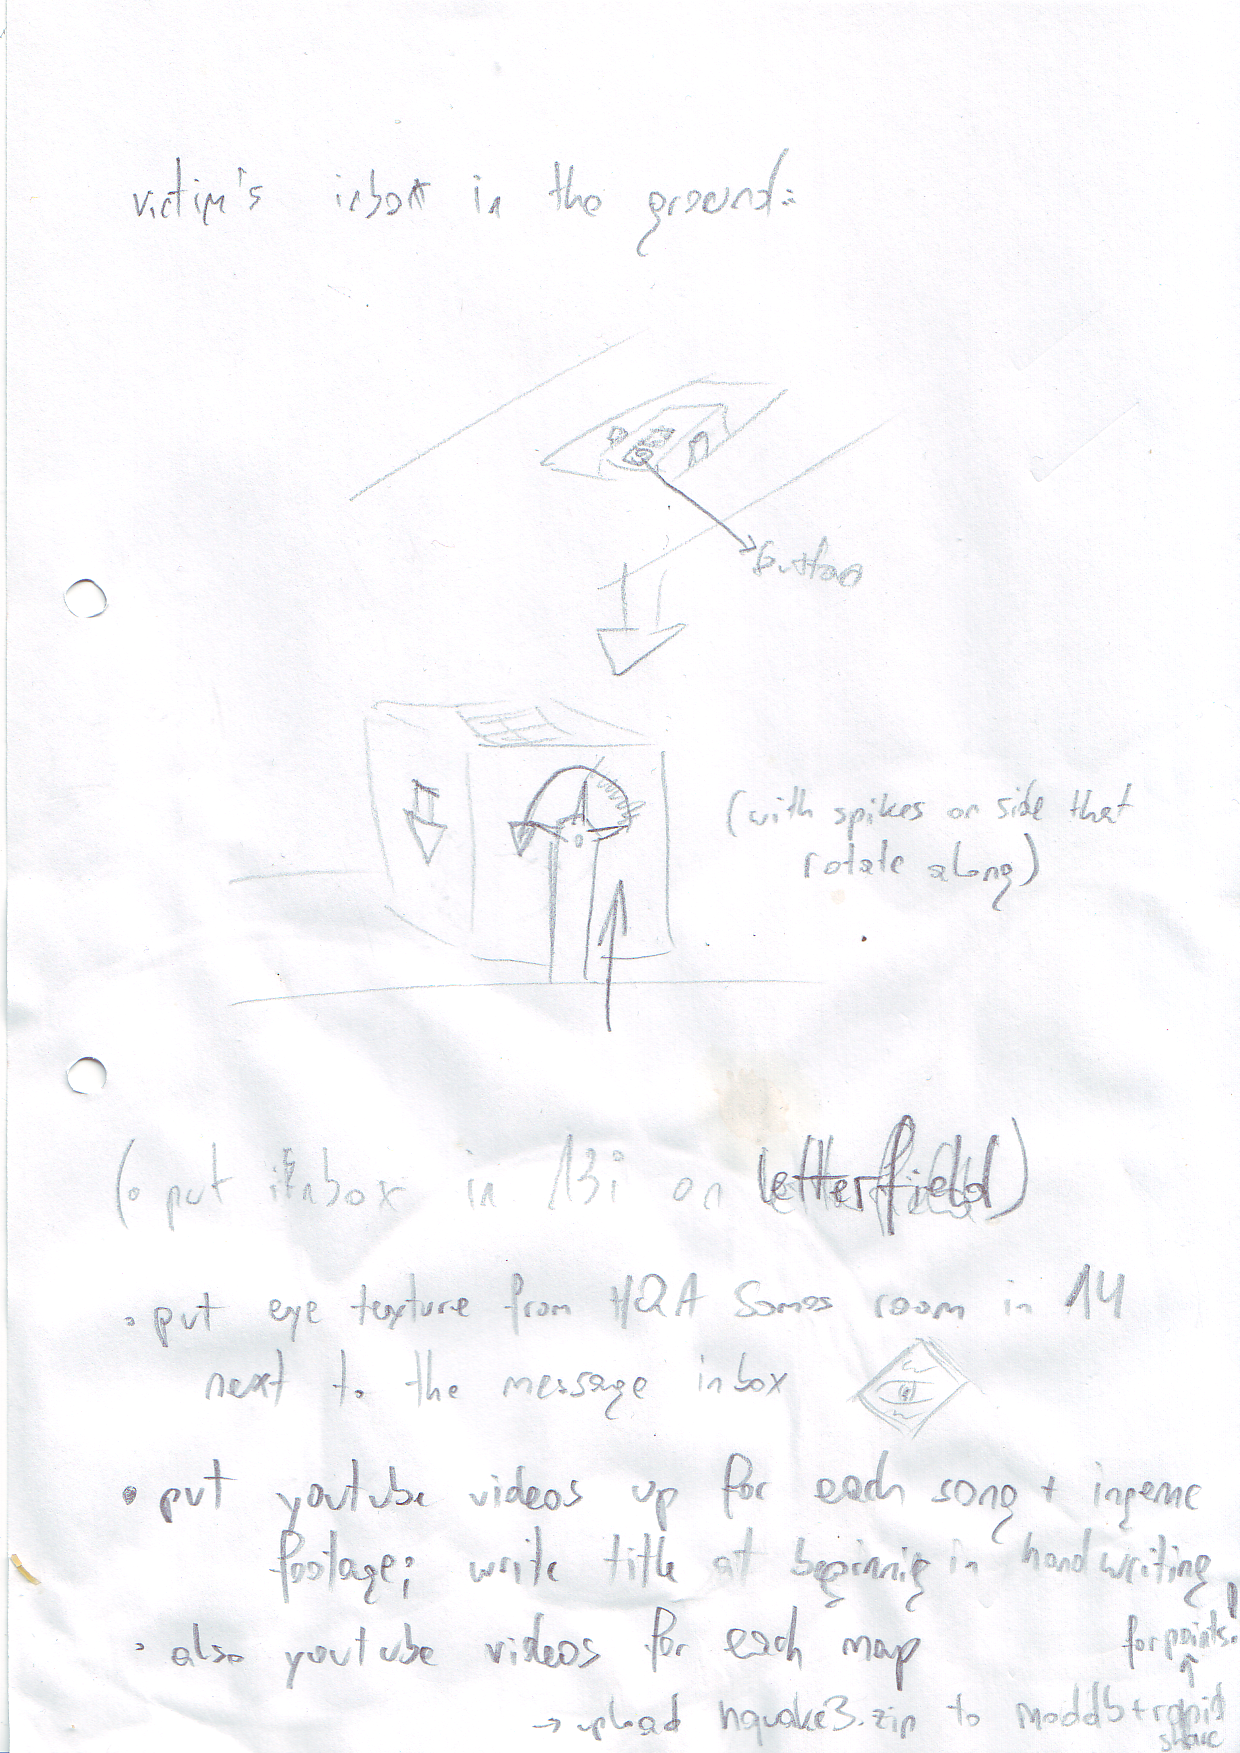 victim's inbox in the ground:
button
(with spikes on side that
rotate along)
(• put inbox in 13i on letterfield)
• put eye texture from HQA Somos room in 14
next to the message inbox
• put youtube videos up for each song + ingame
footage; write title at beginnig in handwriting
• also youtube videos for each map
for points!
→ upload hquake3.zip to moddb + rapid
share